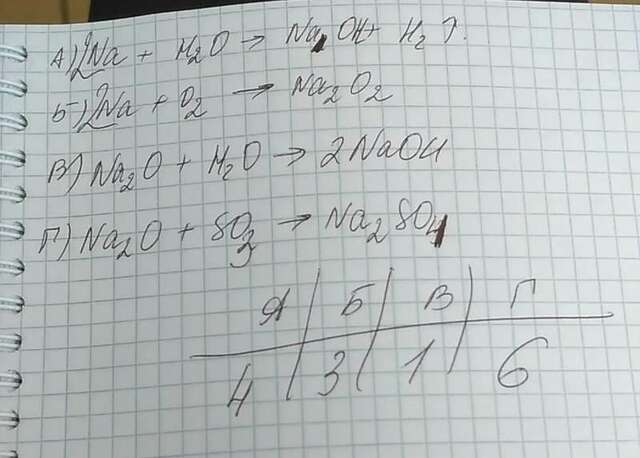 А) 2Na + H₂O → Na OH + H₂ ↑.
Б) 2Na + O₂ → Na₂O₂
В) Na₂O + H₂O → 2NaOH
Г) Na₂O + SO₃ → Na₂SO₄
А | Б | В | Г
4 | 3 | 1 | 6